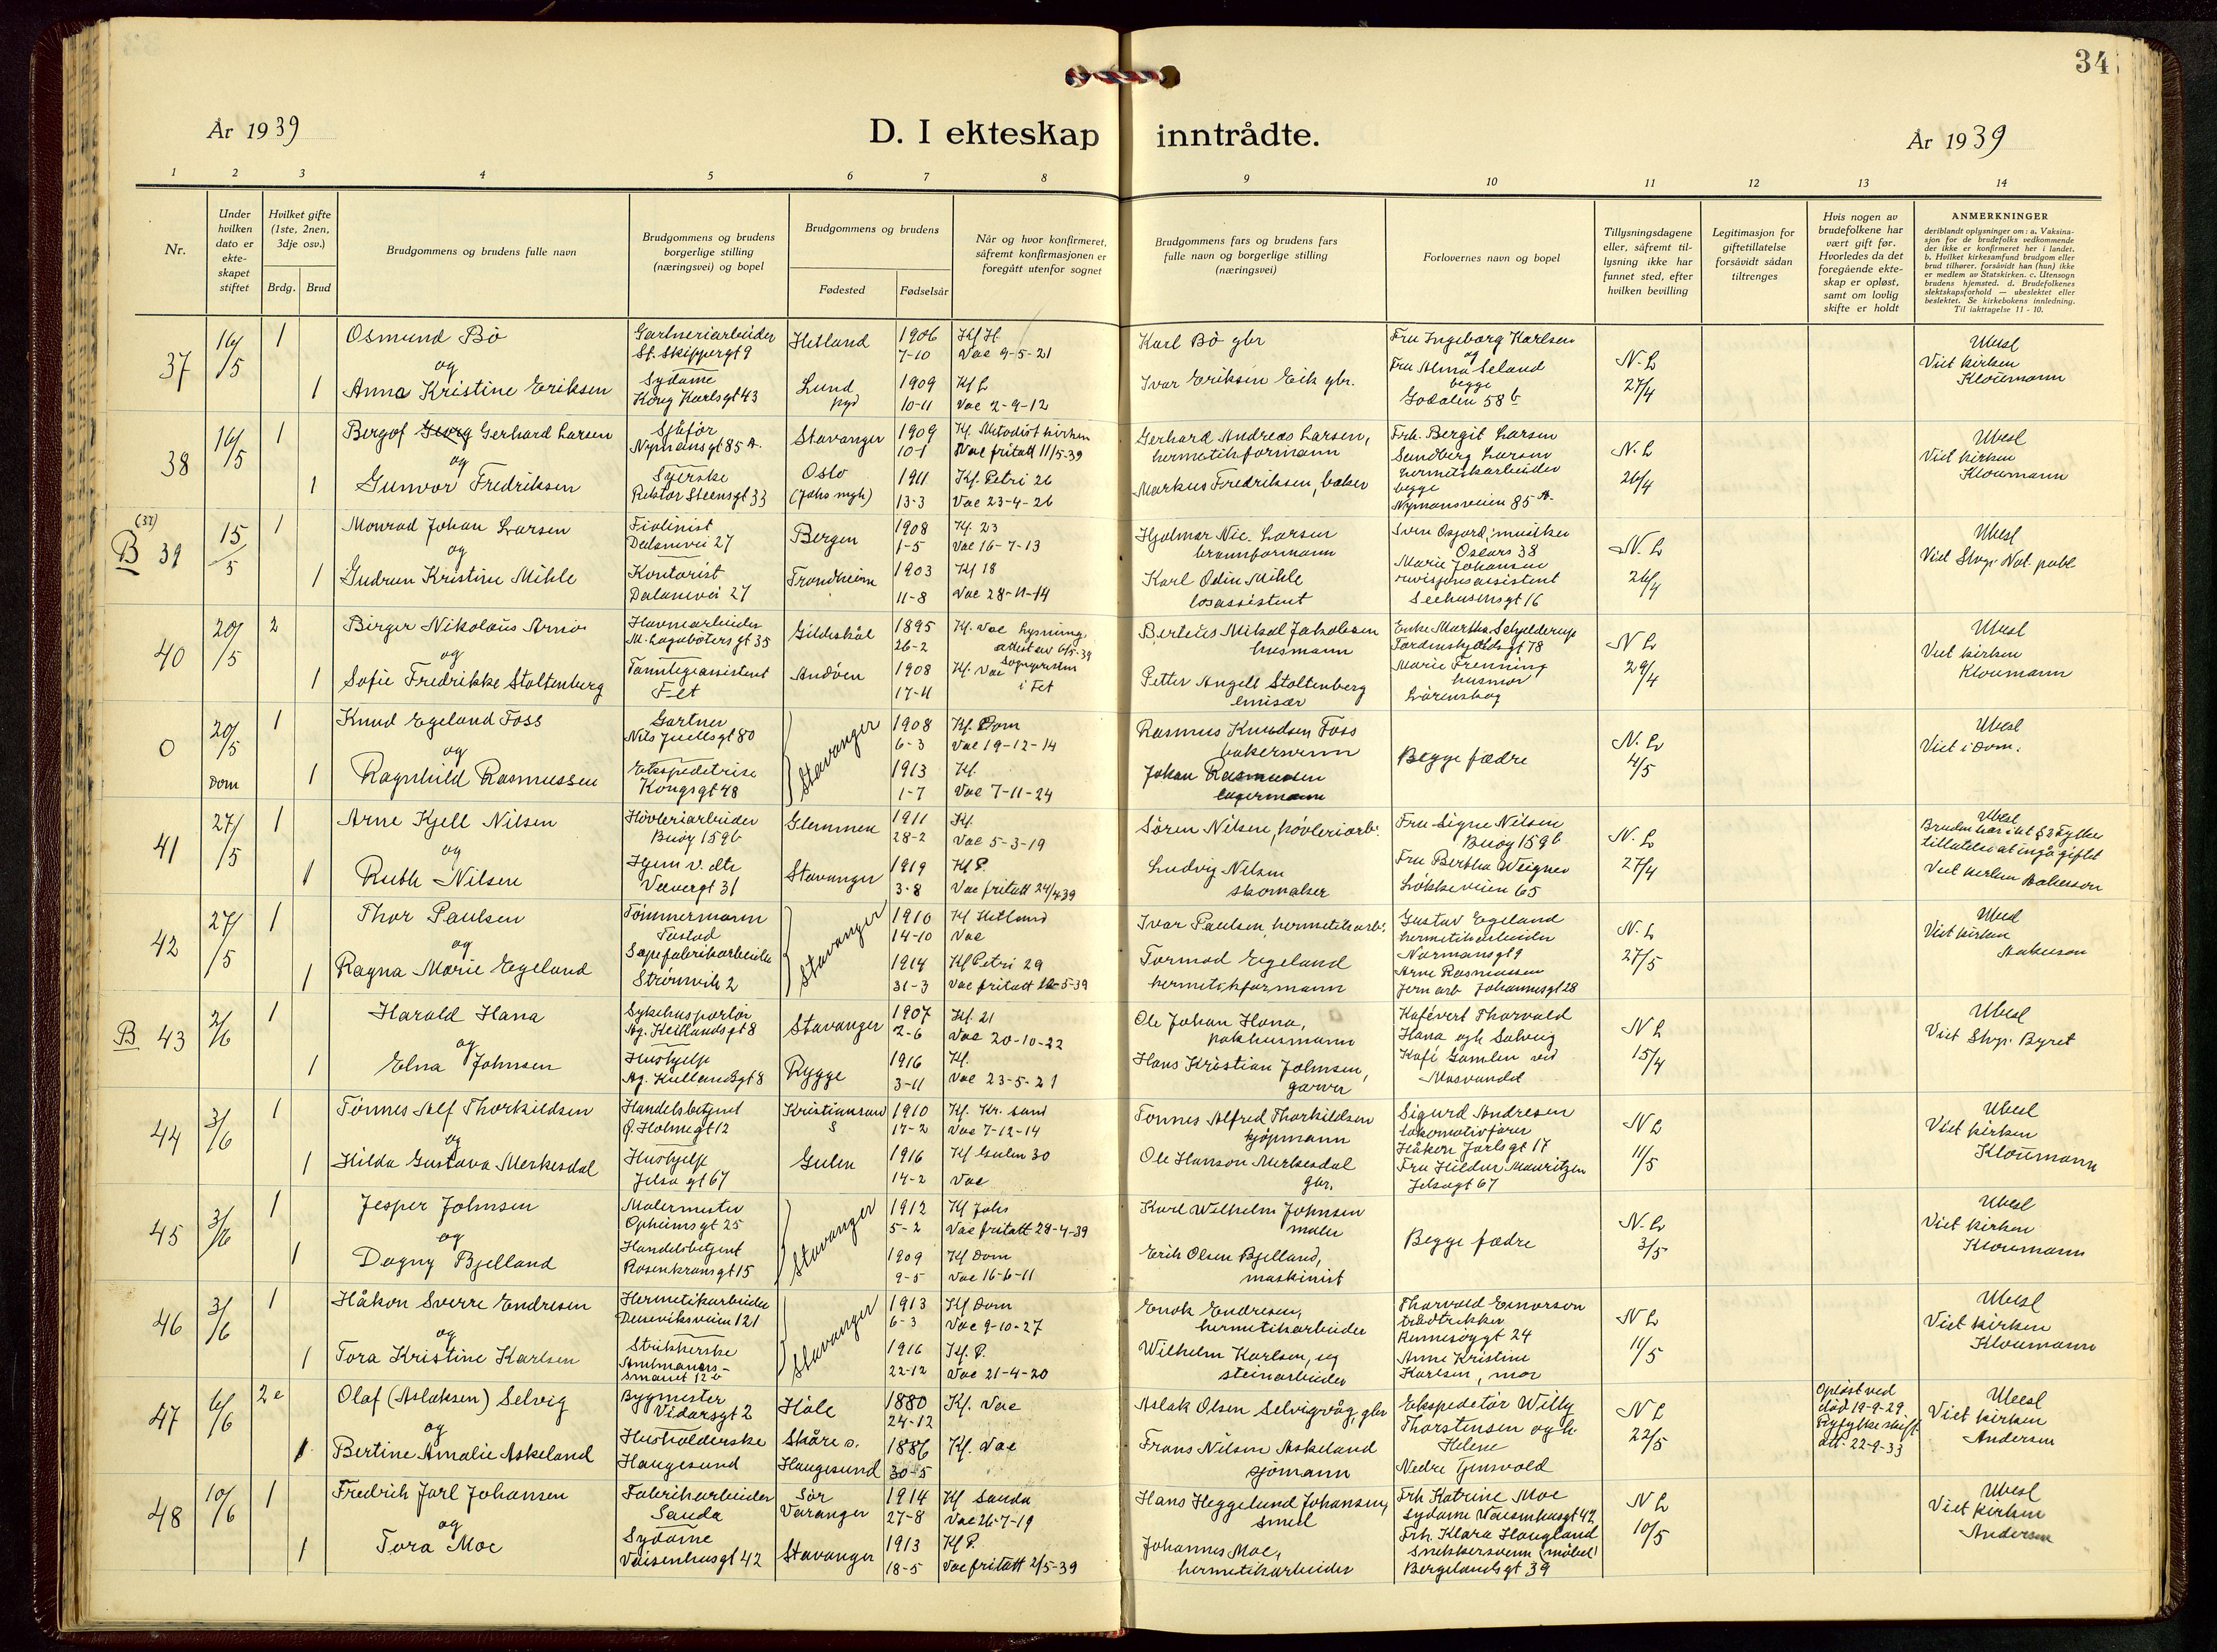 34
År 1939
D. I ekteskap inntrådte.
År 1939
1 2 3 4 5 6 7 8 9 10 11 12 13 14
Nr.
Under hvilken dato er ekteskapet stiftet
Hvilket gifte (1ste, 2nen, 3dje osv.)
Brdg. Brud
Brudgommens og brudens fulle navn
Brudgommens og brudens borgerlige stilling (næringsvei) og bopel
Brudgommens og brudens
Fødested
Fødselsår
Når og hvor konfirmeret, såfremt konfirmasjonen er foregått utenfor sognet
Brudgommens fars og brudens fars fulle navn og borgerlige stilling (næringsvei)
Forlovernes navn og bopel
Tillysningsdagene eller, såfremt tillysning ikke har funnet sted, efter hvilken bevilling
Legitimasjon for giftetillatelse forsåvidt sådan tiltrenges
Hvis nogen av brudefolkene har vært gift før. Hvorledes da det foregående ekteskap er opløst, samt om lovlig skifte er holdt
ANMERKNINGER
deriblandt oplysninger om: a. Vaksinasjon for de brudefolks vedkommende der ikke er konfirmeret her i landet. b. Hvilket kirkesamfund brudgom eller brud tilhører, forsåvidt han (hun) ikke er medlem av Statskirken. c. Utensogn brudens hjemsted. d. Brudefolkenes slektskapsforhold — ubeslektet eller beslektet. Se kirkebokens innledning. Til iakttagelse 11 - 10.
37 16/5 1 Osmund Bö Gartneriarbeider St. Skippergt 9 Hetland 1906 7-10 Kf H. Vac 9-5-21 Karl Bö gbr Fru Ingeborg Karlsen N-L 27/4 Ubesl
og Fru Alma Seland Viet kirken
1 Anna Kristine Eriksen Sydame Kong Karlsgt 43 Lund 1909 10-11 Kf L Vac 2-9-12 Ivar Eriksen Eik gbr. begge Godalen 58 b Kloumann
38 16/5 1 Bergof Georg Gerhard Larsen Sjåfør Nymansgt 85 A. Stavanger 1909 10-1 Kf. Metodistkirken Vac fritatt 11/5-39 Gerhard Andreas Larsen, hermetikformann Frk. Bergit Larsen N. L 26/4 Ubesl
og Sundberg Larsen hermetikarbeider Viet kirken
1 Gunvor Fredriksen Syerske Rektor Steensgt 33 Oslo (Johs mgh) 1911 13-3 Kf. Petri 26 Vac 23-4-26 Markus Fredriksen, baker begge Nymansveien 85 A. Kloumann
(37)
B 39 15/5 1 Monrad Johan Larsen Fiolinist Dalanevei 27 Bergen 1908 1-5 Kf. 23 Vac 16-7-13 Hjalmar Nic. Larsen brannformann N. L 26/4 Ubesl
og Oscars 38 Viet Stvgr. Not. publ
1 Gudrun Kristine Mihle Kontorist Dalanevei 27 Trondheim 1903 11-8 Kf 18 Vac 28-11-14 Karl Odin Mihle losassistent Marie Johansen revisjonsassistent Seehusensgt 16
40 20/5 2 Birger Nikolaus Arnö Havnearbeider M. Lagabøtersgt 35 Gildeskål 1895 26-2 Kf. Vac lysning. attest av 6/5-39 Sogneprsten i Fet Berteus Mikal Jakobsen husmann Enke Martha Schjelderup Tordenskjoldsgt 78 N L 29/4 Ubesl
og Viet kirken
1 Sofie Fredrikke Stoltenberg Tannlegeassistent Fet Andöen 1908 17-11 Kf. Vac Petter Angell Stoltenberg emisær Marie Frenning husmor Lörenskog Kloumann
0 20/5 Dom 1 Knud Egeland Foss Gartner Nils Juellsgt 80 Stavanger 1908 6-3 Kf. Dom Vac 19-12-14 Rasmus Knudsen Foss bakersvenn Begge fædre N. L 4/5 Ubesl
og Viet i Dom.
1 Ragnhild Rasmussen Ekspeditrise Kongsgt 48 1913 1-7 Kf. Vac 7-11-24 Johan Rasmussen lagermann
41 27/5 1 Arne Kjell Nilsen Hövleriarbeider Buöy 159 b Glemmen 1911 28-2 Kf. Vac 5-3-19 Sören Nilsen, hövleriarb. Fru Signe Nilsen Buöy 159 b N. L 27/4 Ubesl
og tillatelse at ingå giftet
1 Ruth Nilsen Hjem v. dtr Vævergt 31 Stavanger 1919 3-8 Kf P. Vac fritatt 24/4 39 Ludvig Nilsen skomaker Fru Bertha Weigner Lökkeveien 65 Viet kirken Aakesson
42 27/5 1 Thor Paulsen Tömmermann Tastad Stavanger 1910 14-10 Kf Hetland Vac Ivar Paulsen, hermetikarb. Gustav Egeland hermetikarbeider Normansgt 9 N. L 27/5 Ubesl
og Viet kirken
1 Ragna Marie Egeland Sapefabrikarbeider Strömvik 2 1914 31-3 Kf Petri 29 Vac fritatt 22-5-39 Tormod Egeland hermetikformann Arne Rasmussen jern arb Johannesgt 28 Aakesson
B 43 2/6 1 Harald Hana Sykehusportör Ag. Kiellandsgt 8 Stavanger 1907 2-6 Kf. 21 Vac 20-10-22 Ole Johan Hana, pakhusmann Kafévert Thorvald Hana og h. Solveig N L 15/4 Ubesl
og Viet Stvgr. Byret
1 Elna Johnsen Hushjelp Ag. Kiellandsgt 8 Rygge 1916 3-11 Kf. Vac 23-5-21 Hans Kristian Johnsen, garver Kafé Gamlen ved Mosvandet
44 3/6 1 Tönnes Alf Thorkildsen Handelsbetjent G. Holmegt 12 Kristiansand S 1910 17-2 Kf. Kr. sand Vac 7-12-14 Tonnes Alfred Thorkildsen kjöpmann Sigurd Andresen lokomotivförer Håkon Jarlsgt 17 N L 11/5 Ubesl
og Viet kirken
1 Hilda Gustava Merkesdal Hushjelp Jelsagt 67 Gulen 1916 14-2 Kf Gulen 30 Vac Ole Hanson Merkesdal gbr. Fru Hildur Mauritzen Jelsagt 67 Kloumann
45 3/6 1 Jesper Johnsen Malermester Opheimsgt 25 Stavanger 1912 5-2 Kf Johs Vac fritatt 28-4-39 Karl Wilhelm Johnsen maler Begge fædre N. L 3/5 Ubesl
og Viet kirken
1 Dagny Bjelland Handelsbetjent Rosenkransgt 15 1909 9-5 Kf Dom Vac 16-6-11 Erik Olsen Bjelland, maskinist Kloumann
46 3/6 1 Håkon Sverre Endresen Hermetikarbeider Dusevikveien 121 Stavanger 1913 6-3 Kf Dom Vac 9-10-27 Enok Endresen, hermetikarbeider Thorvald Einarson Rennesöygt 24 N L 11/5 Ubesl
og Viet kirken
1 Tora Kristine Karlsen Strikkerske Amtmanns- smauet 12 b 1916 22-12 Kf. P. Vac 21-4-20 Wilhelm Karlsen, seg steinarbeider Anne Kristine Karlsen, mor Kloumann
47 6/6 2e Olaf (Aslaksen) Selvig Bygmester Vidarsgt 2 Höle 1880 24-12 Kf. Vac Aslak Olsen Selvigvåg, gbr Ekspeditör Willy Thorstensen og h. Helene N L 22/5 Oplöst ved död 19-9-29 Ryfylke skift att. 22-9-33 Ubesl
og Viet kirken
1 Bertine Amalie Askeland Husholderske Haugesund Skåre o. Haugesund 1886 30-5 Kf. Vac Frans Nilsen Askeland sjömann Nedre Tjensvold Andersen
48 10/6 1 Fredrik Jarl Johansen Fabrikarbeider Sauda Sör Varanger 1914 27-8 Kf Sauda Vac 26-7-19 Hans Heggelund Johansen, smed Frk Katrine Moe sydame Vaisenhusgt 42 N L 10/5 Ubesl
og Viet kirken
1 Tora Moe Sydame Vaisenhusgt 42 Stavanger 1913 18-5 Kf P. Vac fritatt 2/5-39 Johannes Moe, hermetikarbeider Frk. Klara Haugland snekkersvenn (möbel) Bergelandsgt 39 Andersen